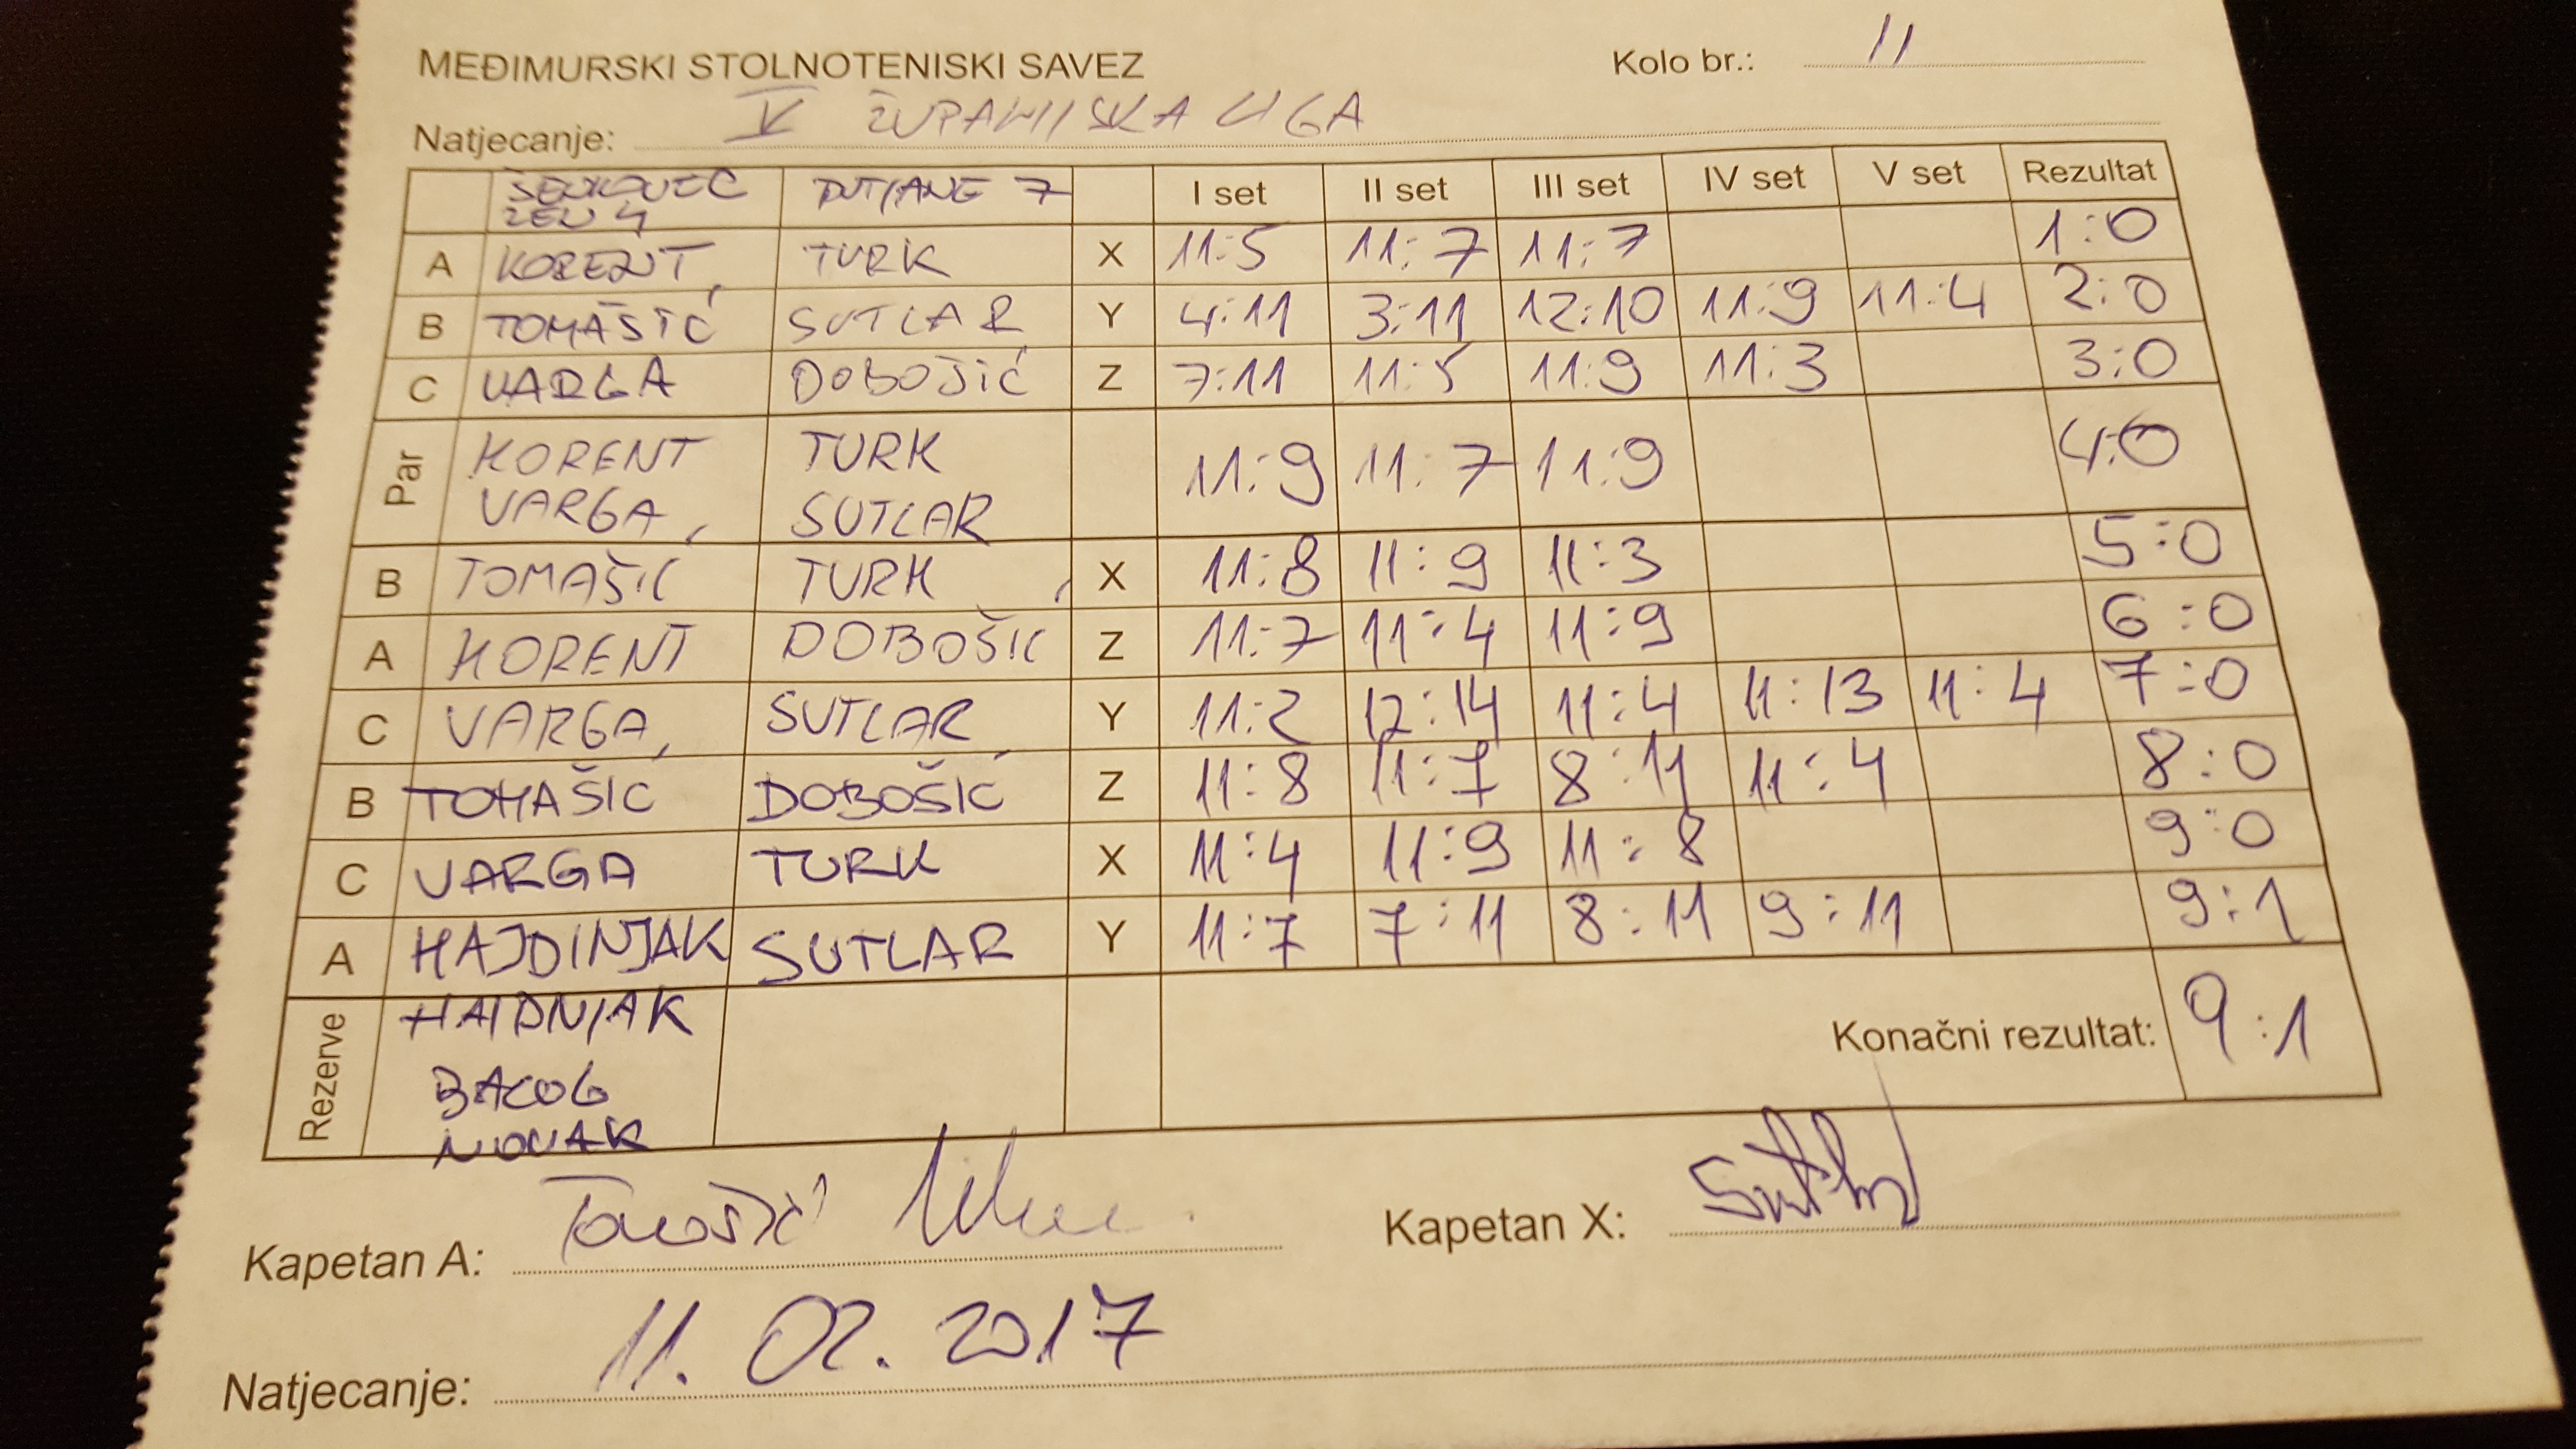 MEĐIMURSKI STOLNOTENISKI SAVEZ Kolo br.: 11
Natjecanje: V ŽUPANIJSKA LIGA
ŠENKOVEC 7 I set II set III set IV set V set Rezultat
4
A KORENT TURK X 11:5 11:7 11:7 1:0
B TOMAŠIĆ SUTLAR Y 4:11 3:11 12:10 11:9 11:4 2:0
C VARGA DOBOŠIĆ Z 7:11 11:5 11:9 11:3 3:0
Par KORENT TURK 11:9 11:7 11:9 4:0
VARGA SUTLAR
B TOMAŠIĆ TURK X 11:8 11:9 11:3 5:0
A KORENT DOBOŠIĆ Z 11:7 11:4 11:9 6:0
C VARGA SUTLAR Y 11:2 12:14 11:4 11:13 11:4 7:0
B TOMAŠIĆ DOBOŠIĆ Z 11:8 11:7 8:11 11:4 8:0
C VARGA TURK X 11:4 11:9 11:8 9:0
A HAJDINJAK SUTLAR Y 11:7 7:11 8:11 9:11 9:1
Rezerve HAJDNJAK Konačni rezultat: 9:1
BALOG
NOVAK
Kapetan A: Tomašić Kapetan X:
Natjecanje: 11. 02. 2017